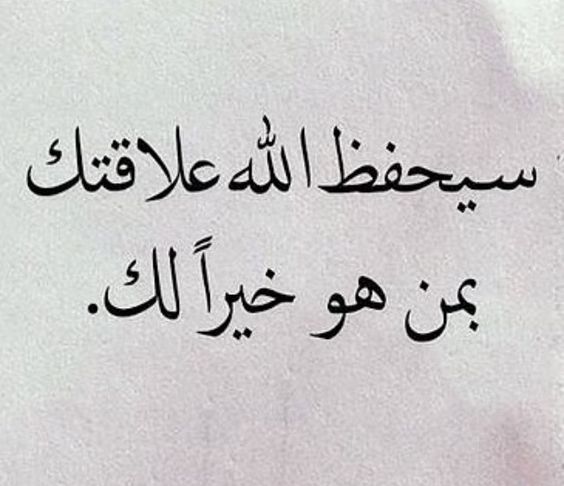 سيحفظ الله علاقتك
بمن هو خيراً لك.